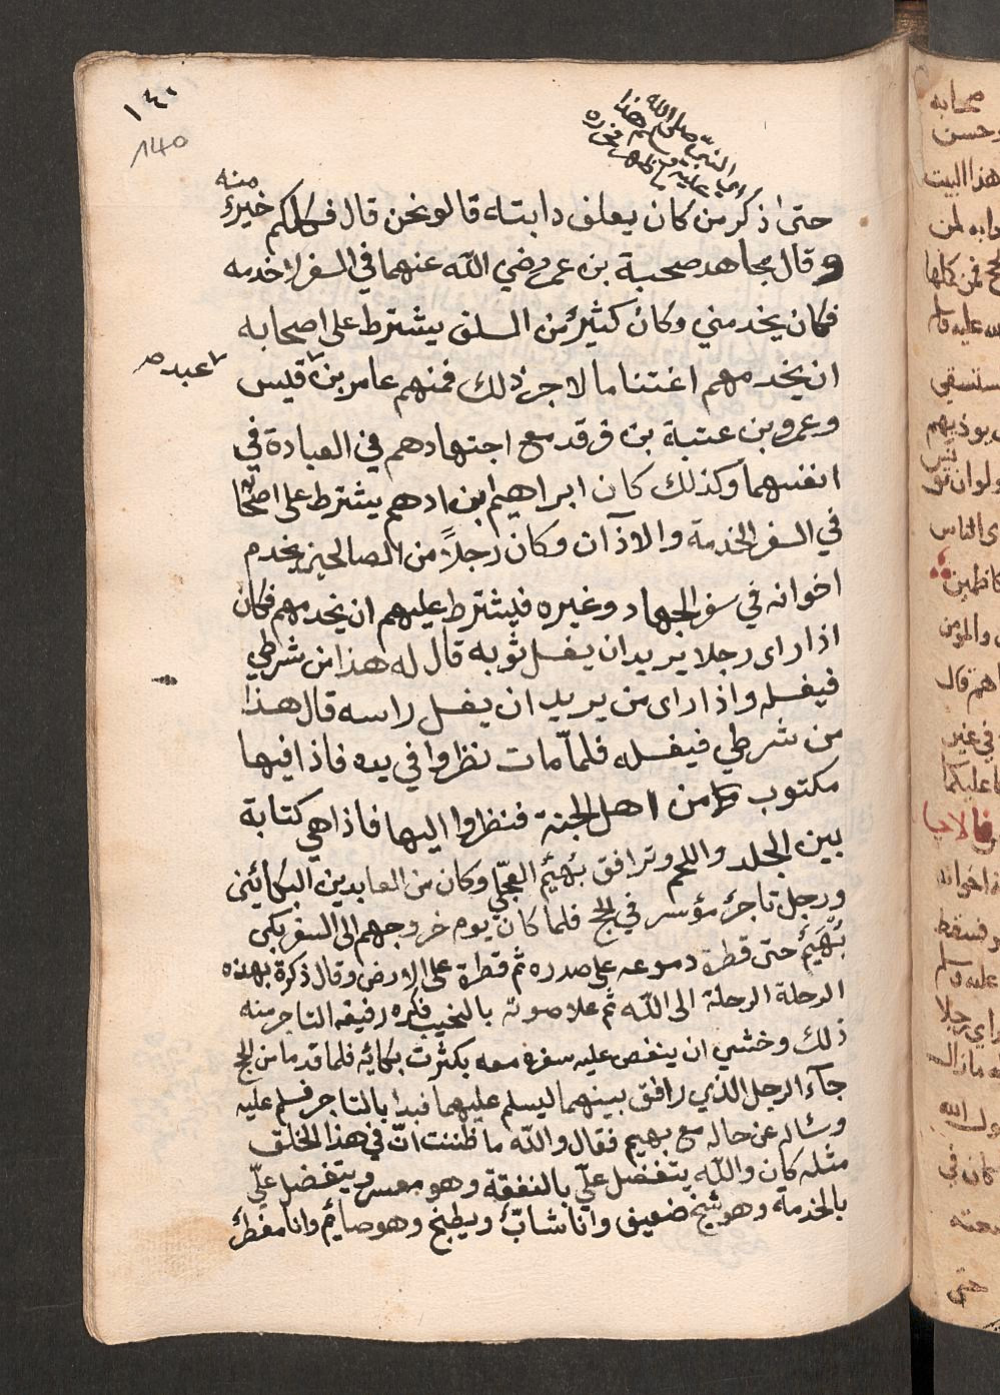 ١٤٠
140
اي النبي صلى الله
عليه وسلم هذا
حتى اذكر من كان يعلف دابته قالو نحن قال فكلكم خير
منه
وقال مجاهد صحبة بن عمر رضي الله عنهما في السفر لاخدمه
فكان يخدمني وكان كثير من السلف يشترط على اصحابه
ان يخدمهم اغتناما لاجر ذلك فمنهم عامر بن قيس
عبد صح
وعمرو بن عتبة بن فرقد مع اجتهادهم في العبادة في
انفسهما وكذلك كان ابراهيم ابن ادهم يشترط على اصحابه
في السفر الخدمة والاذان وكان رجلاً من الصالحين يخدم
اخوانه في سفر الجهاد وغيره فيشترط عليهم ان يخدمهم فكان
اذا راى رجلا يريد ان يغسل ثوبه قال له هذا من شرطي
فيغسله واذا راى من يريد ان يغسل راسه قال هذا
من شرطي فيغسله فلما مات نظروا في يده فاذا فيها
مكتوب من اهل الجنة فنظروا اليها فاذا هي كتابة
بين الجلد واللحم وترافق بُهَيْم العجلي وكان من العابدين البكائين
ورجل تاجر مؤسر في الحج فلما كان يوم خروجهم الى السفر بكى
بُهَيْم حتى قطرة دموعه على صدره ثم قطرة على الارض وقال ذكرة بهذه
الرحلة الرحلة الى الله ثم علا صوته بالنحيب فكره رفيقه التاجر منه
ذلك وخشي ان ينغص عليه سفره معه بكثرت بكائه فلما قدما من الحج
جآء الرجل الذي رافق بينهما ليسلم عليهما فبدا بالتاجر فسلم عليه
وسئاله عن حاله مع بهيم فقال والله ما ظننت انّ في هذا الخلق
مثله كان والله يتفضل عليّ بالنفقة وهو معسر ويتفضل عليّ
بالخدمة وهو شيخ ضعيف وانا شابّ ويطبخ وهو صايم وانا مفطر